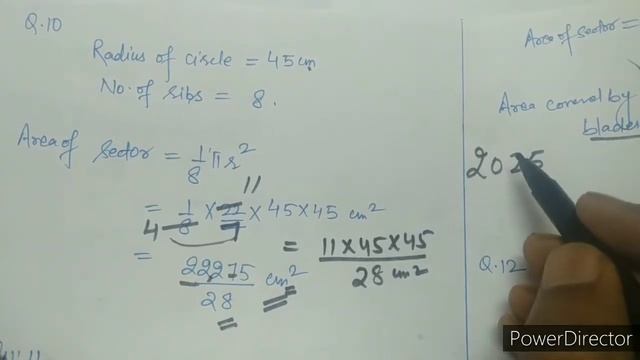 Q.10
Radius of circle = 45 cm.
No. of ribs = 8.
Area of sector = 1/8 πr²
11
= 1/8 × 22/7 × 45 × 45 cm²
4
= 22275/28 cm²
= 11×45×45/28 cm²
Area of sector =
Area covered by
blades
2025
Q.12
PowerDirector